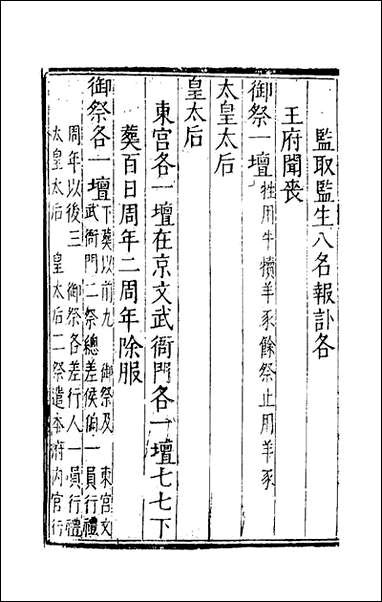 監取監生八名報訃各
王府聞喪
御祭一壇牲用牛犢羊豕餘祭止用羊豕
太皇太后
皇太后
東宮各一壇在京文武衙門各一壇七七下
葬百日周年二周年除服
御祭各一壇下葬以前九 御祭及 東宮文
武衙門二祭總差侯伯一員行禮
周年以後三 御祭各差行人一員行禮
太皇太后 皇太后二祭遣本府內官行